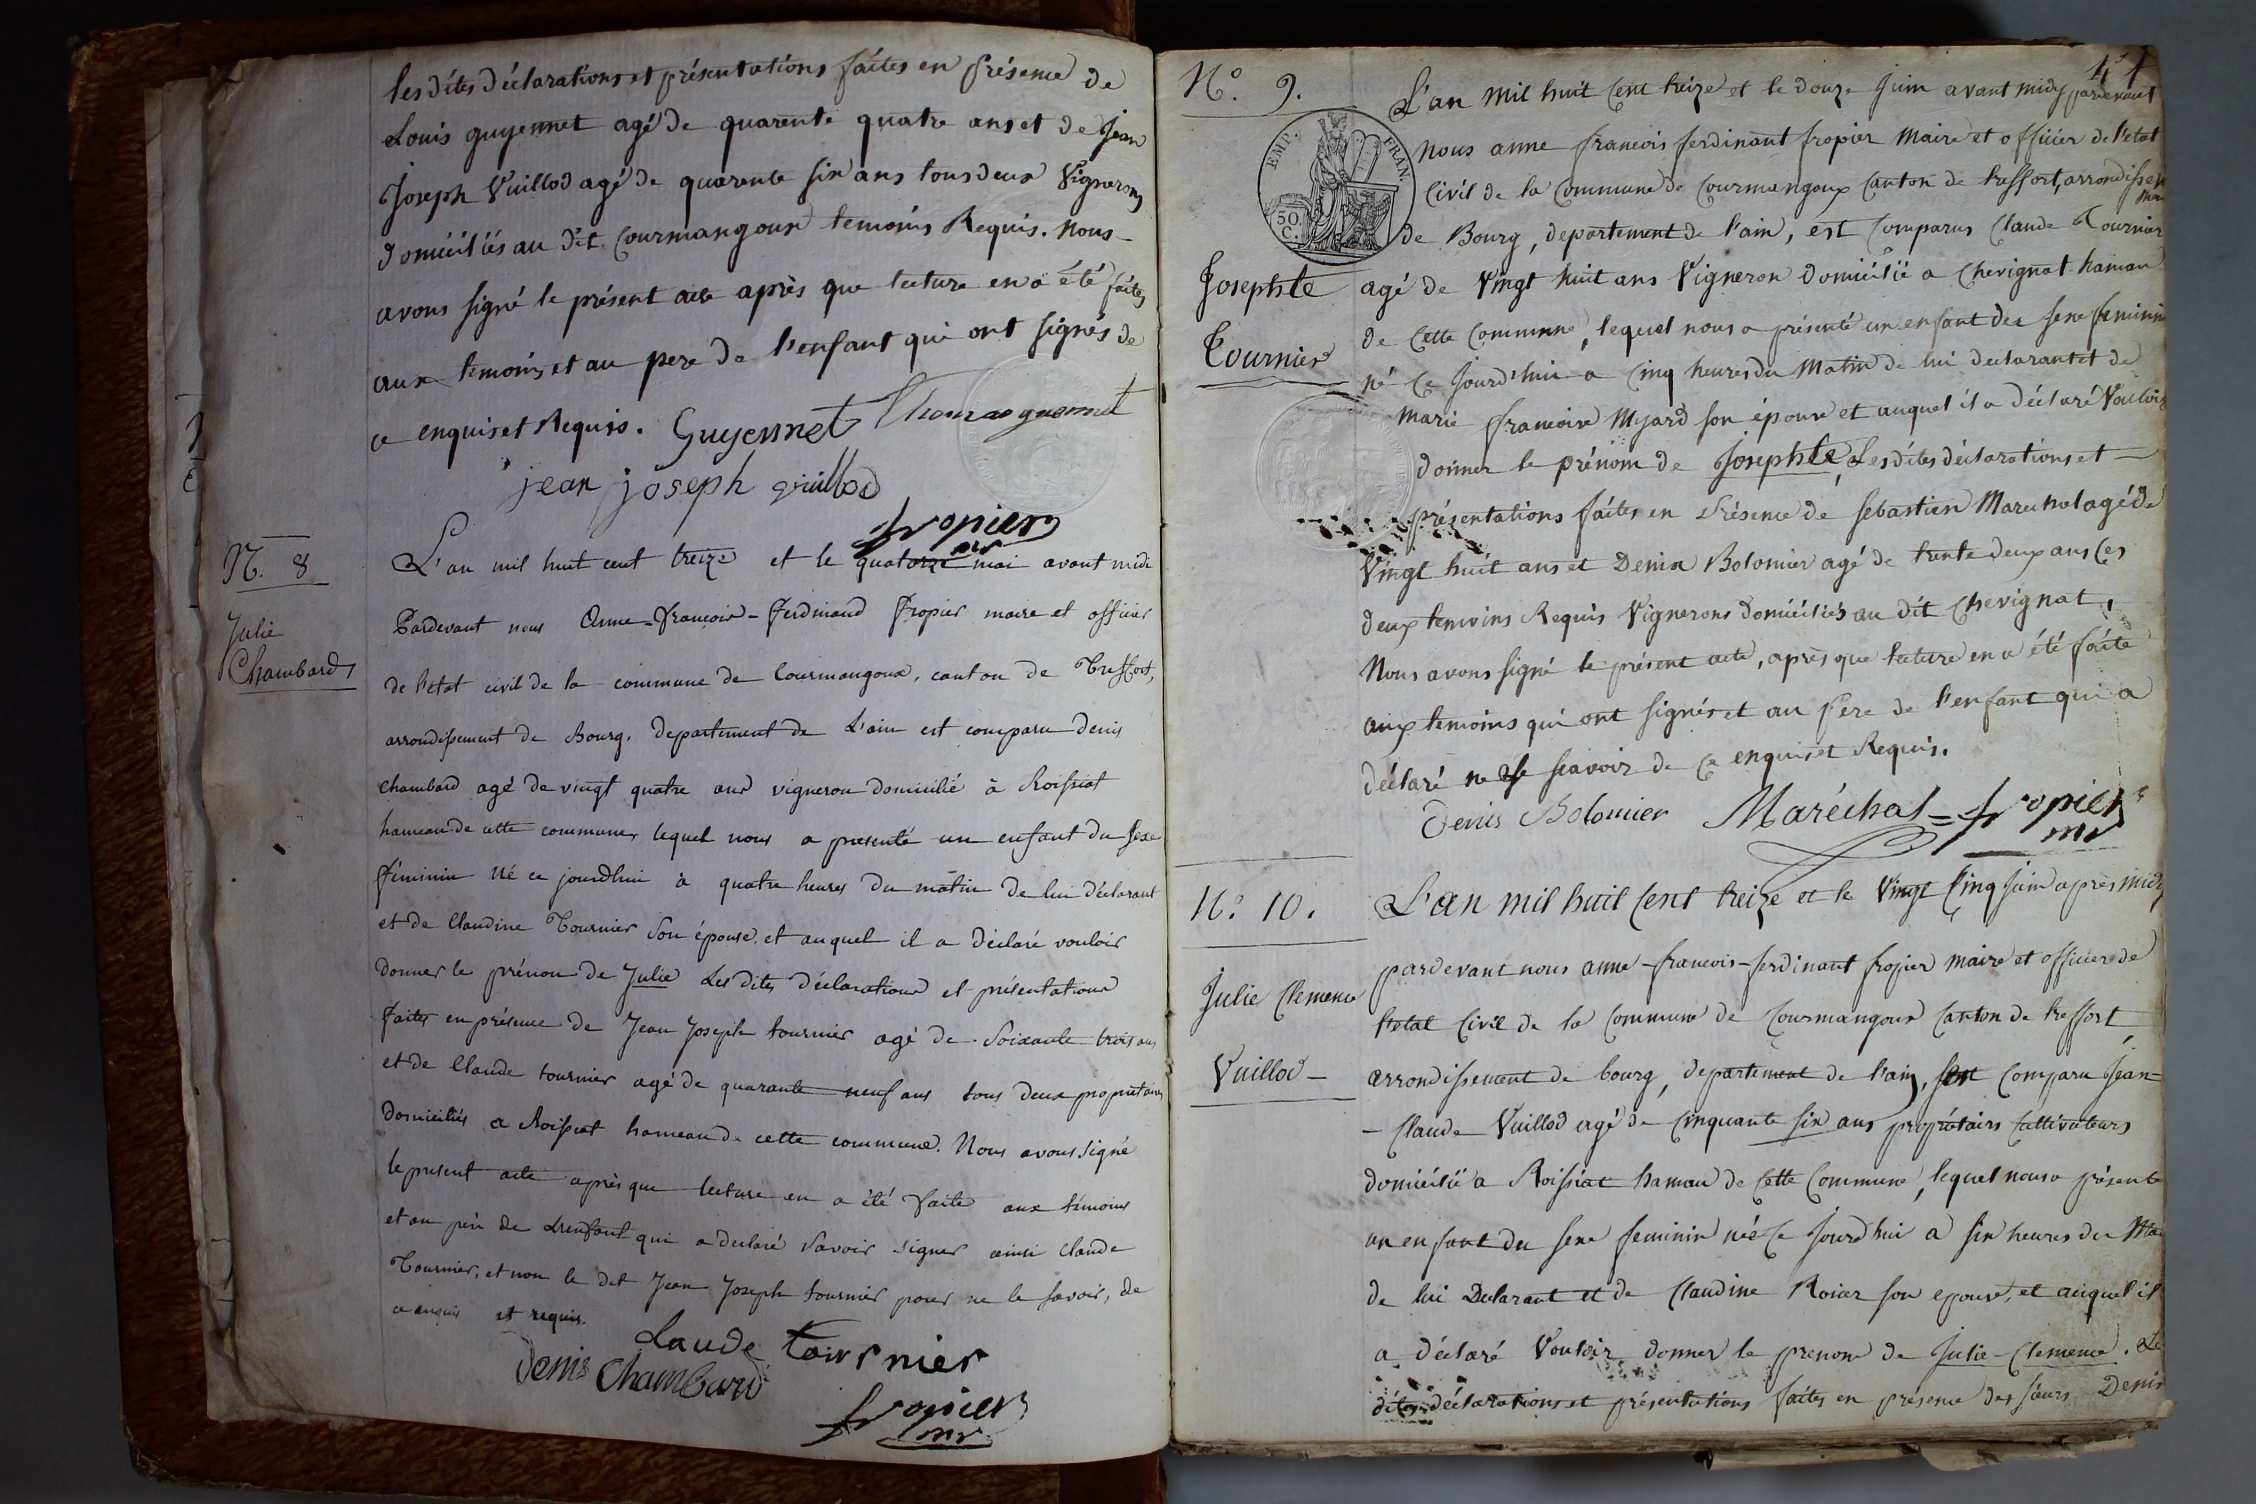 les dites déclarations et présentations faites en présence de
Louis guyennet agé de quarente quatre ans et de Jean
Joseph Vuillod agé de quarente six ans tous deux Vignerons
domiciliés au dit Courmangoux temoins Requis. nous
avons signé le présent acte après que lecture en a été faites
aux temoins et au pere de l'enfant qui ont signés de
ce enquis et Requis. Guyennet Thomas guennet
jean joseph vuillod
fropier
mr
N. 8
L'an mil huit cent treize et le quatorze mai avant midi
Pardevant nous Anne-francois-Ferdinand Fropier maire et officier
Julie
Chambard
de l'etat civil de la commune de Courmangoux, canton de Treffort,
arrondissement de Bourg, departement de L'ain est comparu denis
chambard agé de vingt quatre ans vigneron domicilié à Roissiat
hameau de cette commune, lequel nous a presenté un enfant du sexe
féminin né ce jourdhui à quatre heures du matin de lui déclarant
et de Claudine Tournier son épouse, et auquel il a déclaré vouloir
donner le prénom de Julie Les dites déclarations et présentations
faites en présence de Jean Joseph tournier agé de soixante trois ans
et de Claude tournier agé de quarante neuf ans tous deux proprietaires
domiciliés a Roissiat hameau de cette commune. Nous avons signé
le present acte après que lecture en a été faite aux témoins
et au père de L'enfant qui a declaré savoir signer ainsi Claude
Tournier, et non le dit Jean Joseph tournier pour ne le savoir, de
ce enquis et requis.
Claude tournier
Denis Chambard
fropier
mr
N.o 9.
L'an mil huit Cent treize et le douze Juin avant midy pardevant
nous anne francois ferdinant fropier Maire et officier de l'etat
EMP. FRAN.
50
C.
Civil de la Commune de Courmangoux Canton de treffort, arrondissement
de Bourg, departement de l'ain, est Comparus Claude Tournier
Josephte
Tournier
agé de Vingt huit ans Vigneron domicilié a Chevignat hamau
de Cette Commune, lequel nous a présenté un enfant des sexe feminin
né Ce Jourd'hui a Cinq heures du Matin de lui declarant et de
Marie francoise Myard son épouse et auquel il a déclaré Vouloir
donner le prénom de Josephte, Les dites déclarations et
présentations faites en Présence de sebastien Marechal agé de
Vingt huit ans et Denis Bolomier agé de trente deux ans Ces
deux temoins Requis Vignerons domiciliés au dit Chevignat,
Nous avons signé le présent acte, après que lecture en a été faite
aux temoins qui ont signés et au Pere de l'enfant qui a
déclaré ne scavoir de Ce enquis et Requis.
Denis Bolomier Maréchal fropier
mr
N.o 10.
L'an mil huit Cent treize et le Vingt Cinq Juin après midy
pardevant nous anne-francois-ferdinant fropier maire et officier de
Julie Clemence
Vuillod
l'etat Civil de la Commune de Courmangoux Canton de treffort
arrondissement de bourg, departement de l'ain, est Comparu Jean
Claude Vuillod agé de Cinquante six ans propriétaire Cultivateurs
domicilié a Roissiat hamau de Cette Commune, lequel nous a présente
un enfant du sexe feminin né Ce Jourd'hui a six heures du Ma
de lui Declarant et de Claudine Roier son epouse, et auquel il
a déclaré Vouloir donner le prenom de Julie-Clemence. Le
dites déclarations et présentations faites en présence des sieurs Denis